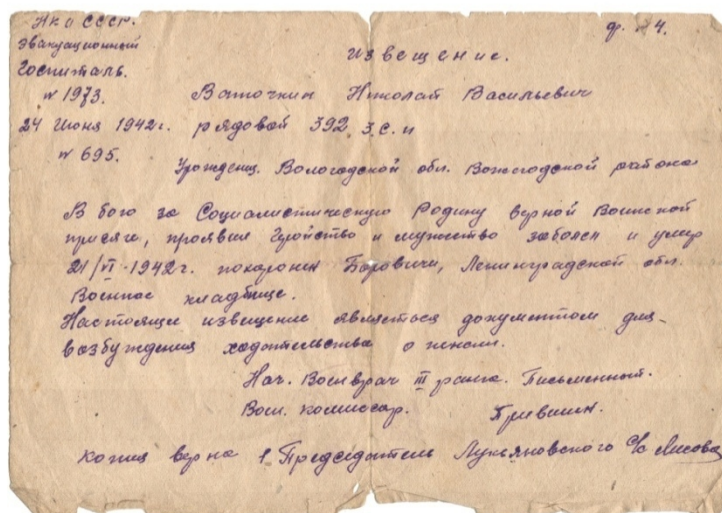 НКО СССР. ф. 4.
Эвакуационный
Госпиталь. Извещение.
№ 1973. Ваточкин Николай Васильевич
24 Июня 1942г. рядовой 392 з.с.п
№ 695. Урожденц. Вологодской обл. Вожегодской района
В бою за Социалистическую Родину верной Воинской
присяге, проявил Гройство и мужество заболел и умер
21/VI-1942г. похоронен Боровичи, Ленинградской обл.
Военное кладбище.
Настоящее извещение является документом для
возбуждения ходотельства о пенсии.
Нач. Воен врач III ранга. Письменный.
Воен. комиссар.
копия верна Председатель Лукьяновского с/с Лисова